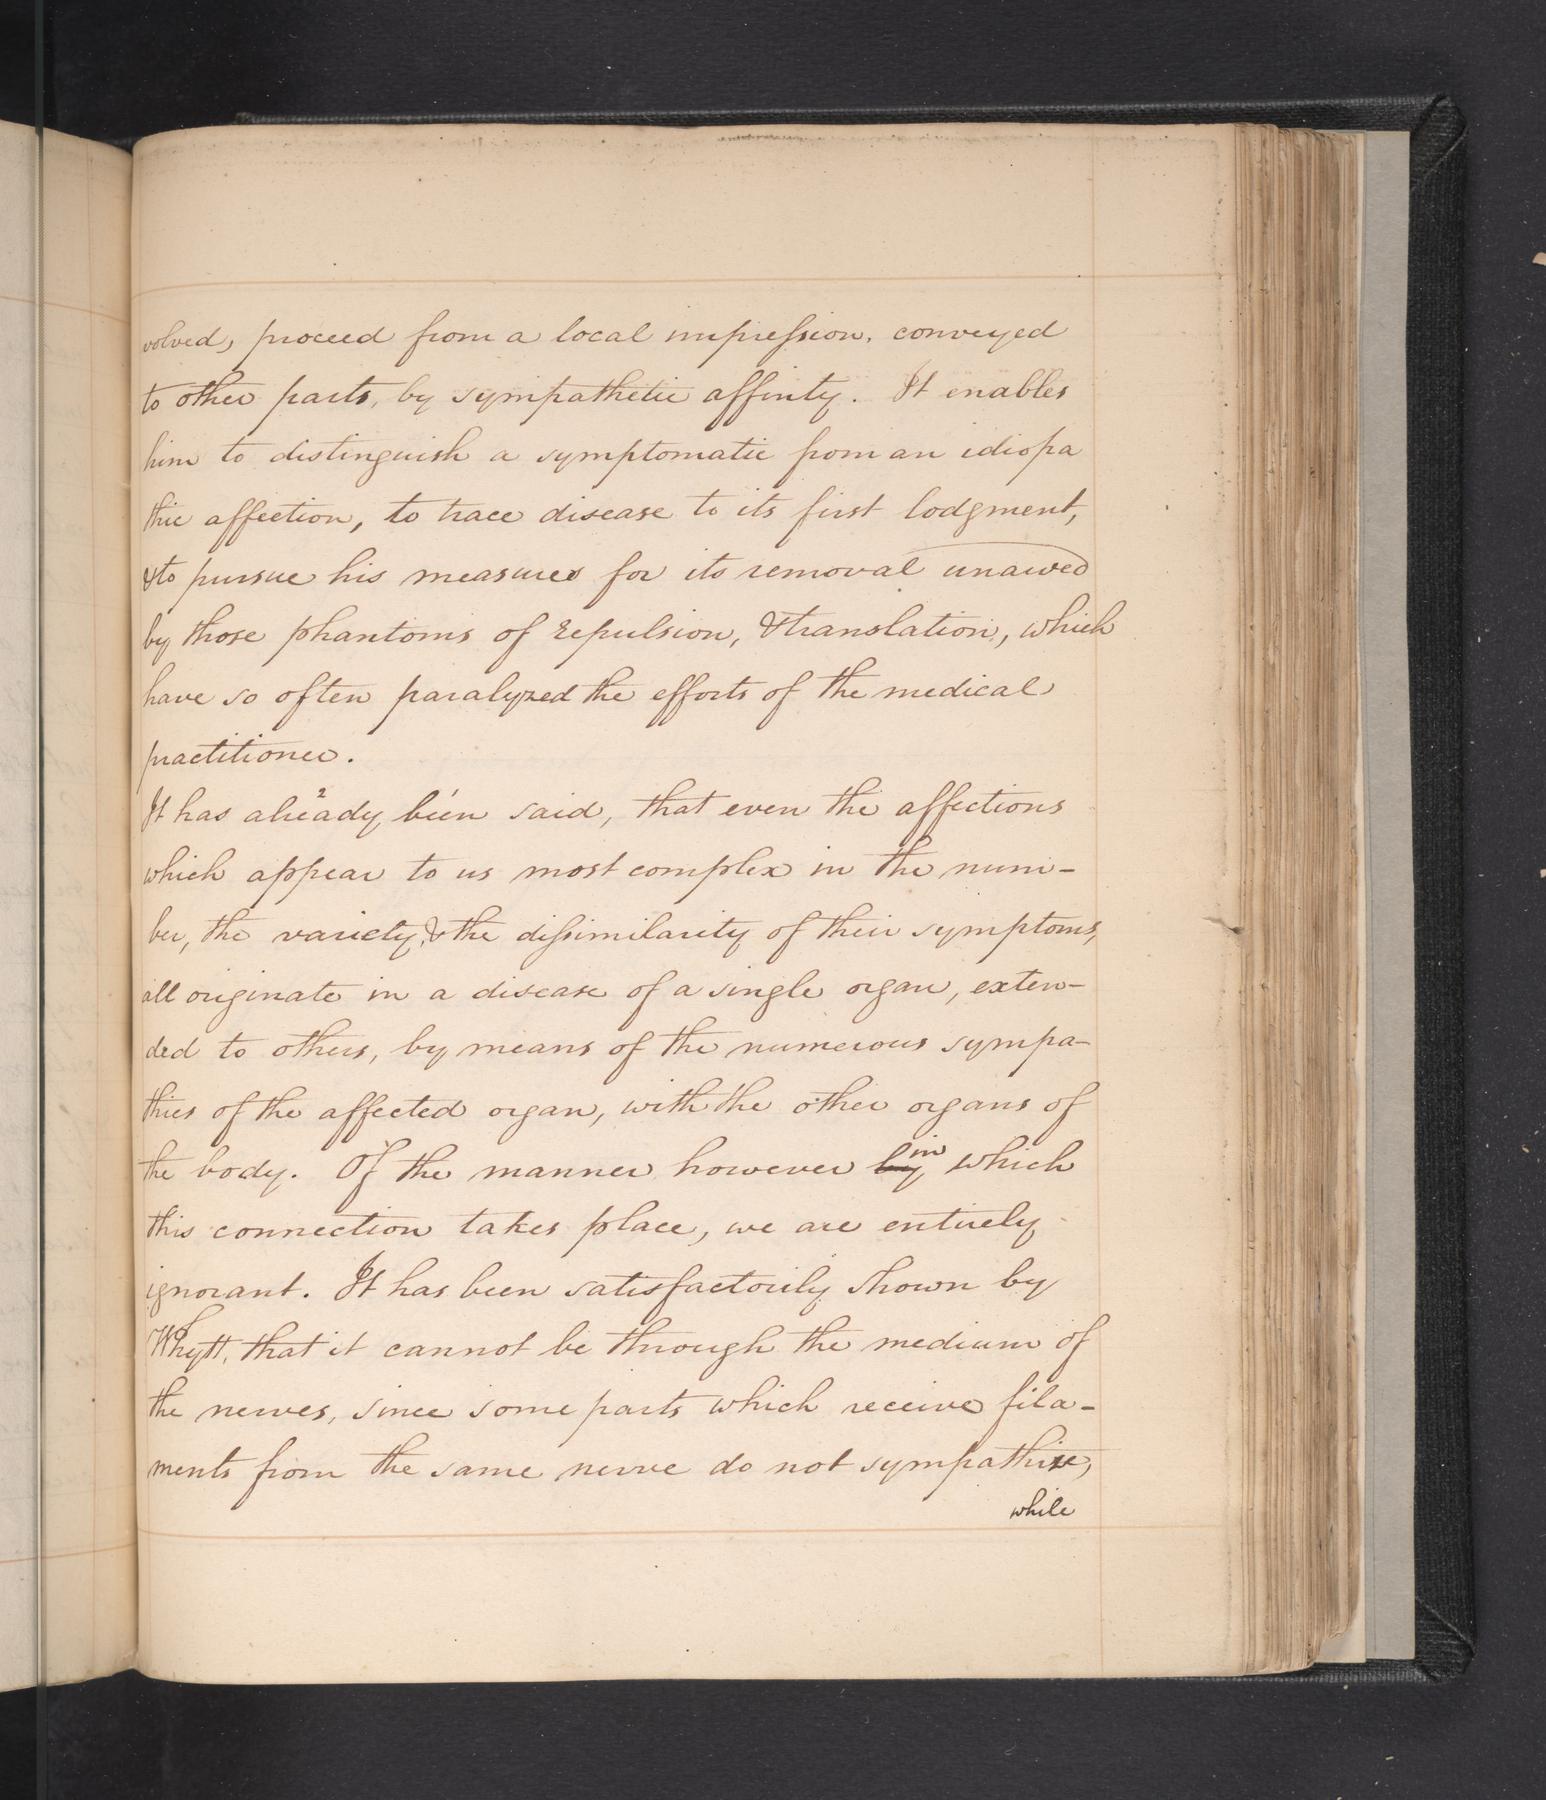 volved, proceed from a local impression, conveyed
to other parts, by sympathetic affinty. It enables
him to distinguish a symptomatic from an idiopa
thic affection, to trace disease to its first lodgment,
& to pursue his measures for its removal unawed
by those phantoms of repulsion, & translation, which
have so often paralyzed the efforts of the medical
practitioner.
It has already been said, that even the affections
which appear to us most complex in the num-
ber, the variety, & the dissimilarity of their symptoms,
all originate in a disease of a single organ, exten-
ded to others, by means of the numerous sympa-
thies of the affected organ, with the other organs of
the body. Of the manner however by in which
this connection takes place, we are entirely
ignorant. It has been satisfactorily shown by
Whytt, that it cannot be through the medium of
the nerves, since some parts which receive fila-
ments from the same nerve do not sympathize,
while